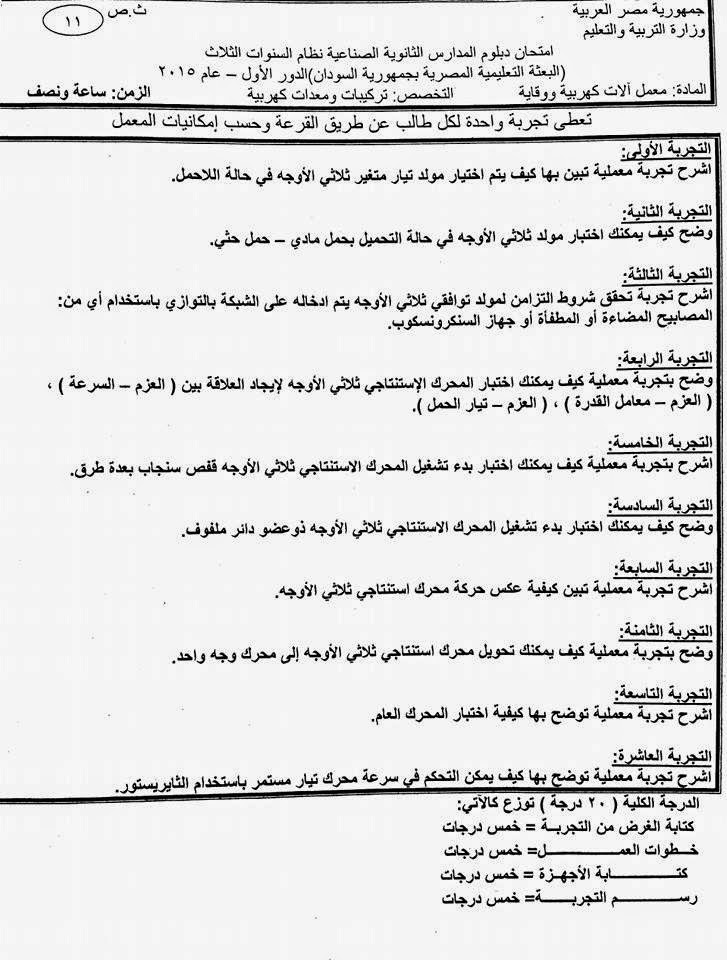 جمهورية مصر العربية
وزارة التربية والتعليم
ث.ص
١١
امتحان دبلوم المدارس الثانوية الصناعية نظام السنوات الثلاث
(البعثة التعليمية المصرية بجمهورية السودان)الدور الأول – عام ٢٠١٥
المادة: معمل آلات كهربية ووقاية التخصص: تركيبات ومعدات كهربية الزمن: ساعة ونصف
تعطى تجربة واحدة لكل طالب عن طريق القرعة وحسب إمكانيات المعمل
التجربة الأولى:
اشرح تجربة معملية تبين بها كيف يتم اختيار مولد تيار متغير ثلاثي الأوجه في حالة اللاحمل.
التجربة الثانية:
وضح كيف يمكنك اختبار مولد ثلاثي الأوجه في حالة التحميل بحمل مادي – حمل حثي.
التجربة الثالثة:
اشرح تجربة تحقق شروط التزامن لمولد توافقي ثلاثي الأوجه يتم ادخاله على الشبكة بالتوازي باستخدام أي من:
المصابيح المضاءة أو المطفأة أو جهاز السنكرونسكوب.
التجربة الرابعة:
وضح بتجربة معملية كيف يمكنك اختبار المحرك الإستنتاجي ثلاثي الأوجه لإيجاد العلاقة بين ( العزم – السرعة ) ،
( العزم – معامل القدرة ) ، ( العزم – تيار الحمل ).
التجربة الخامسة:
اشرح بتجربة معملية كيف يمكنك اختبار بدء تشغيل المحرك الاستنتاجي ثلاثي الأوجه قفص سنجاب بعدة طرق.
التجربة السادسة:
وضح كيف يمكنك اختبار بدء تشغيل المحرك الاستنتاجي ثلاثي الأوجه ذوعضو دائر ملفوف.
التجربة السابعة:
اشرح تجربة معملية تبين كيفية عكس حركة محرك استنتاجي ثلاثي الأوجه.
التجربة الثامنة:
وضح بتجربة معملية كيف يمكنك تحويل محرك استنتاجي ثلاثي الأوجه إلى محرك وجه واحد.
التجربة التاسعة:
اشرح تجربة معملية توضح بها كيفية اختبار المحرك العام.
التجربة العاشرة:
اشرح تجربة معملية توضح بها كيف يمكن التحكم في سرعة محرك تيار مستمر باستخدام الثايريستور.
الدرجة الكلية ( ٢٠ درجة ) توزع كالآتي:
كتابة الغرض من التجربــة = خمس درجات
خــطوات العمـــــــــــــل= خمس درجات
كتـــــــــــابة الأجهـزة = خمس درجات
رســــــــــم التجربـــــة= خمس درجات